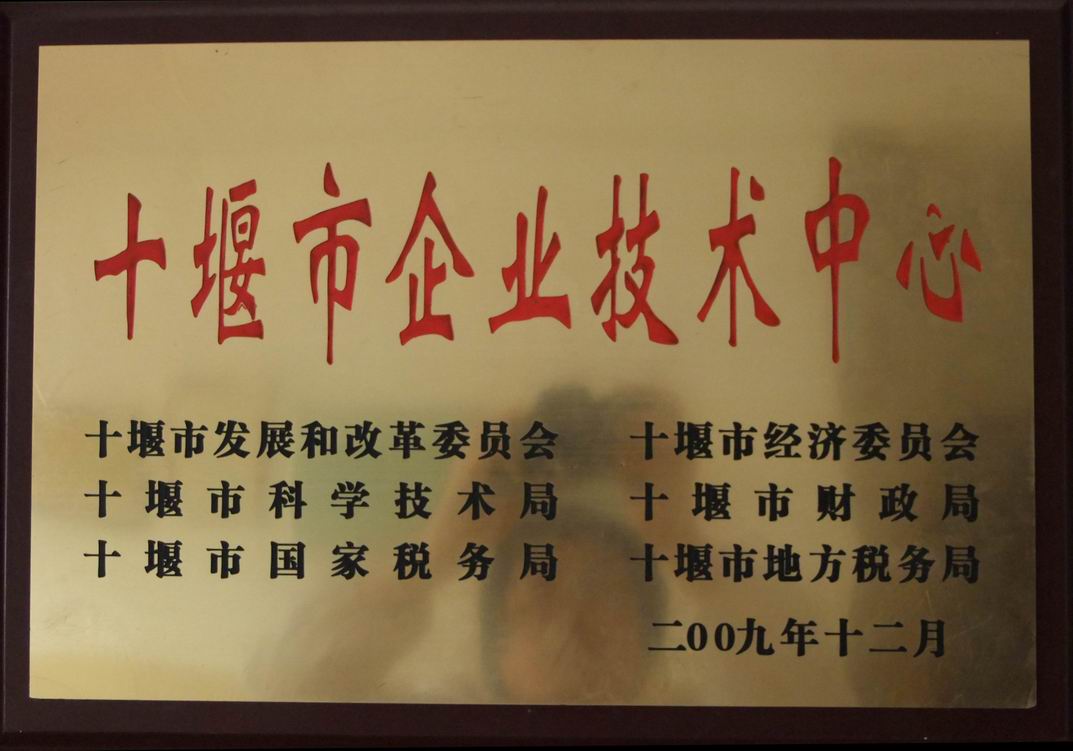 十堰市企业技术中心
十堰市发展和改革委员会 十堰市经济委员会
十堰市科学技术局 十堰市财政局
十堰市国家税务局 十堰市地方税务局
二00九年十二月